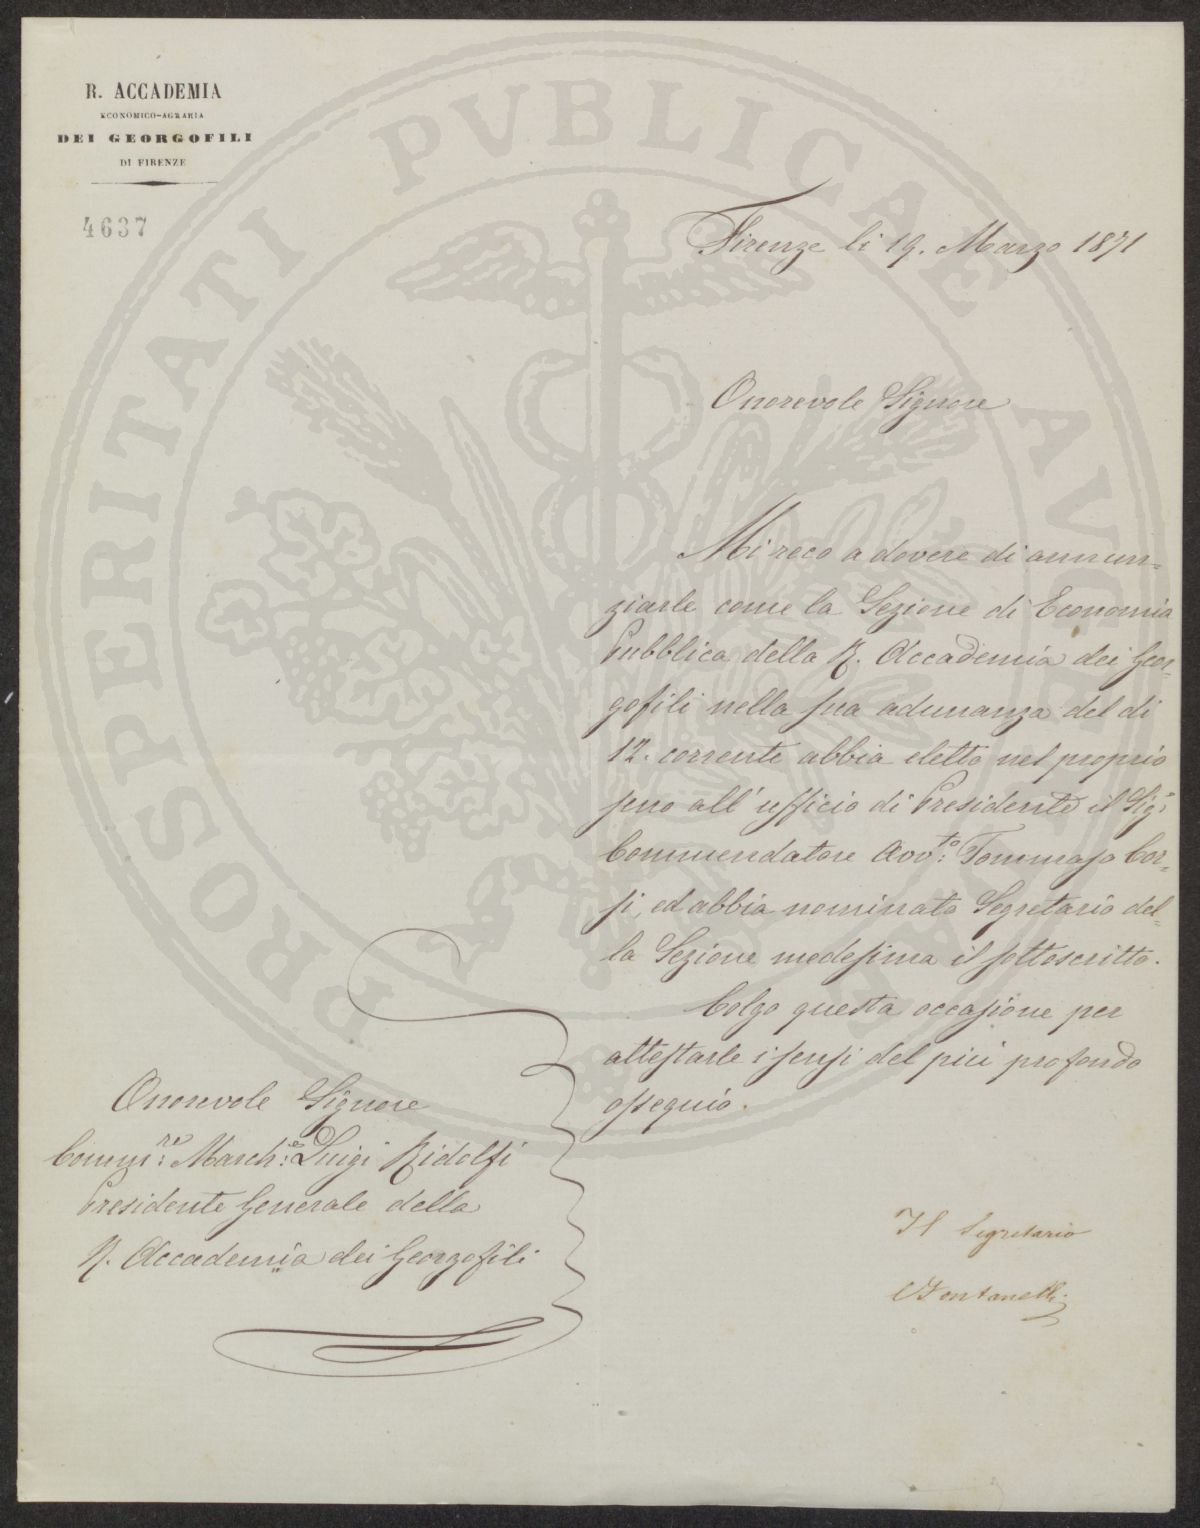 R. ACCADEMIA
ECONOMICO-AGRARIA
DEI GEORGOFILI
DI FIRENZE
4637
PROSPERITATI PVBLICAE AVGENDAE
Firenze li 19. Marzo 1871
Onorevole Signore
Mi reco a dovere di annun=
ziarle come la Sezione di Economia
Pubblica della R. Accademia dei Geor=
gofili nella sua adunanza del di
12. corrente abbia eletto nel proprio
seno all'ufficio di Presidente il Sig:r
Commendatore Avv:to Tommaso Cor=
si, ed abbia nominato Segretario del=
la Sezione medesima il sottoscritto.
Colgo questa occasione per
attestarle i sensi del più profondo
ossequio.
Onorevole Signore
Comm:re March:e Luigi Ridolfi
Presidente Generale della
R. Accademia dei Georgofili
Il Segretario
C Fontanelli